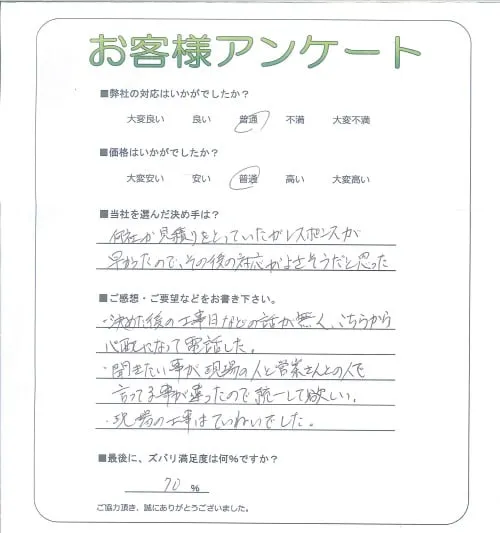 お客様アンケート
■弊社の対応はいかがでしたか？
大変良い 良い 普通 不満 大変不満
■価格はいかがでしたか？
大変安い 安い 普通 高い 大変高い
■当社を選んだ決め手は？
何社か見積りをとっていたがレスポンスが
早かったので、その後の対応がよさそうだと思った
■ご感想・ご要望などをお書き下さい。
・決めた後の工事日などの話が無く、こちらから
心配になって電話した。
・聞きたい事が現場の人と営業さんとの人で
言ってる事が違ったので統一して欲しい。
・現場の工事はていねいでした。
■最後に、ズバリ満足度は何％ですか？
70 %
ご協力頂き、誠にありがとうございました。